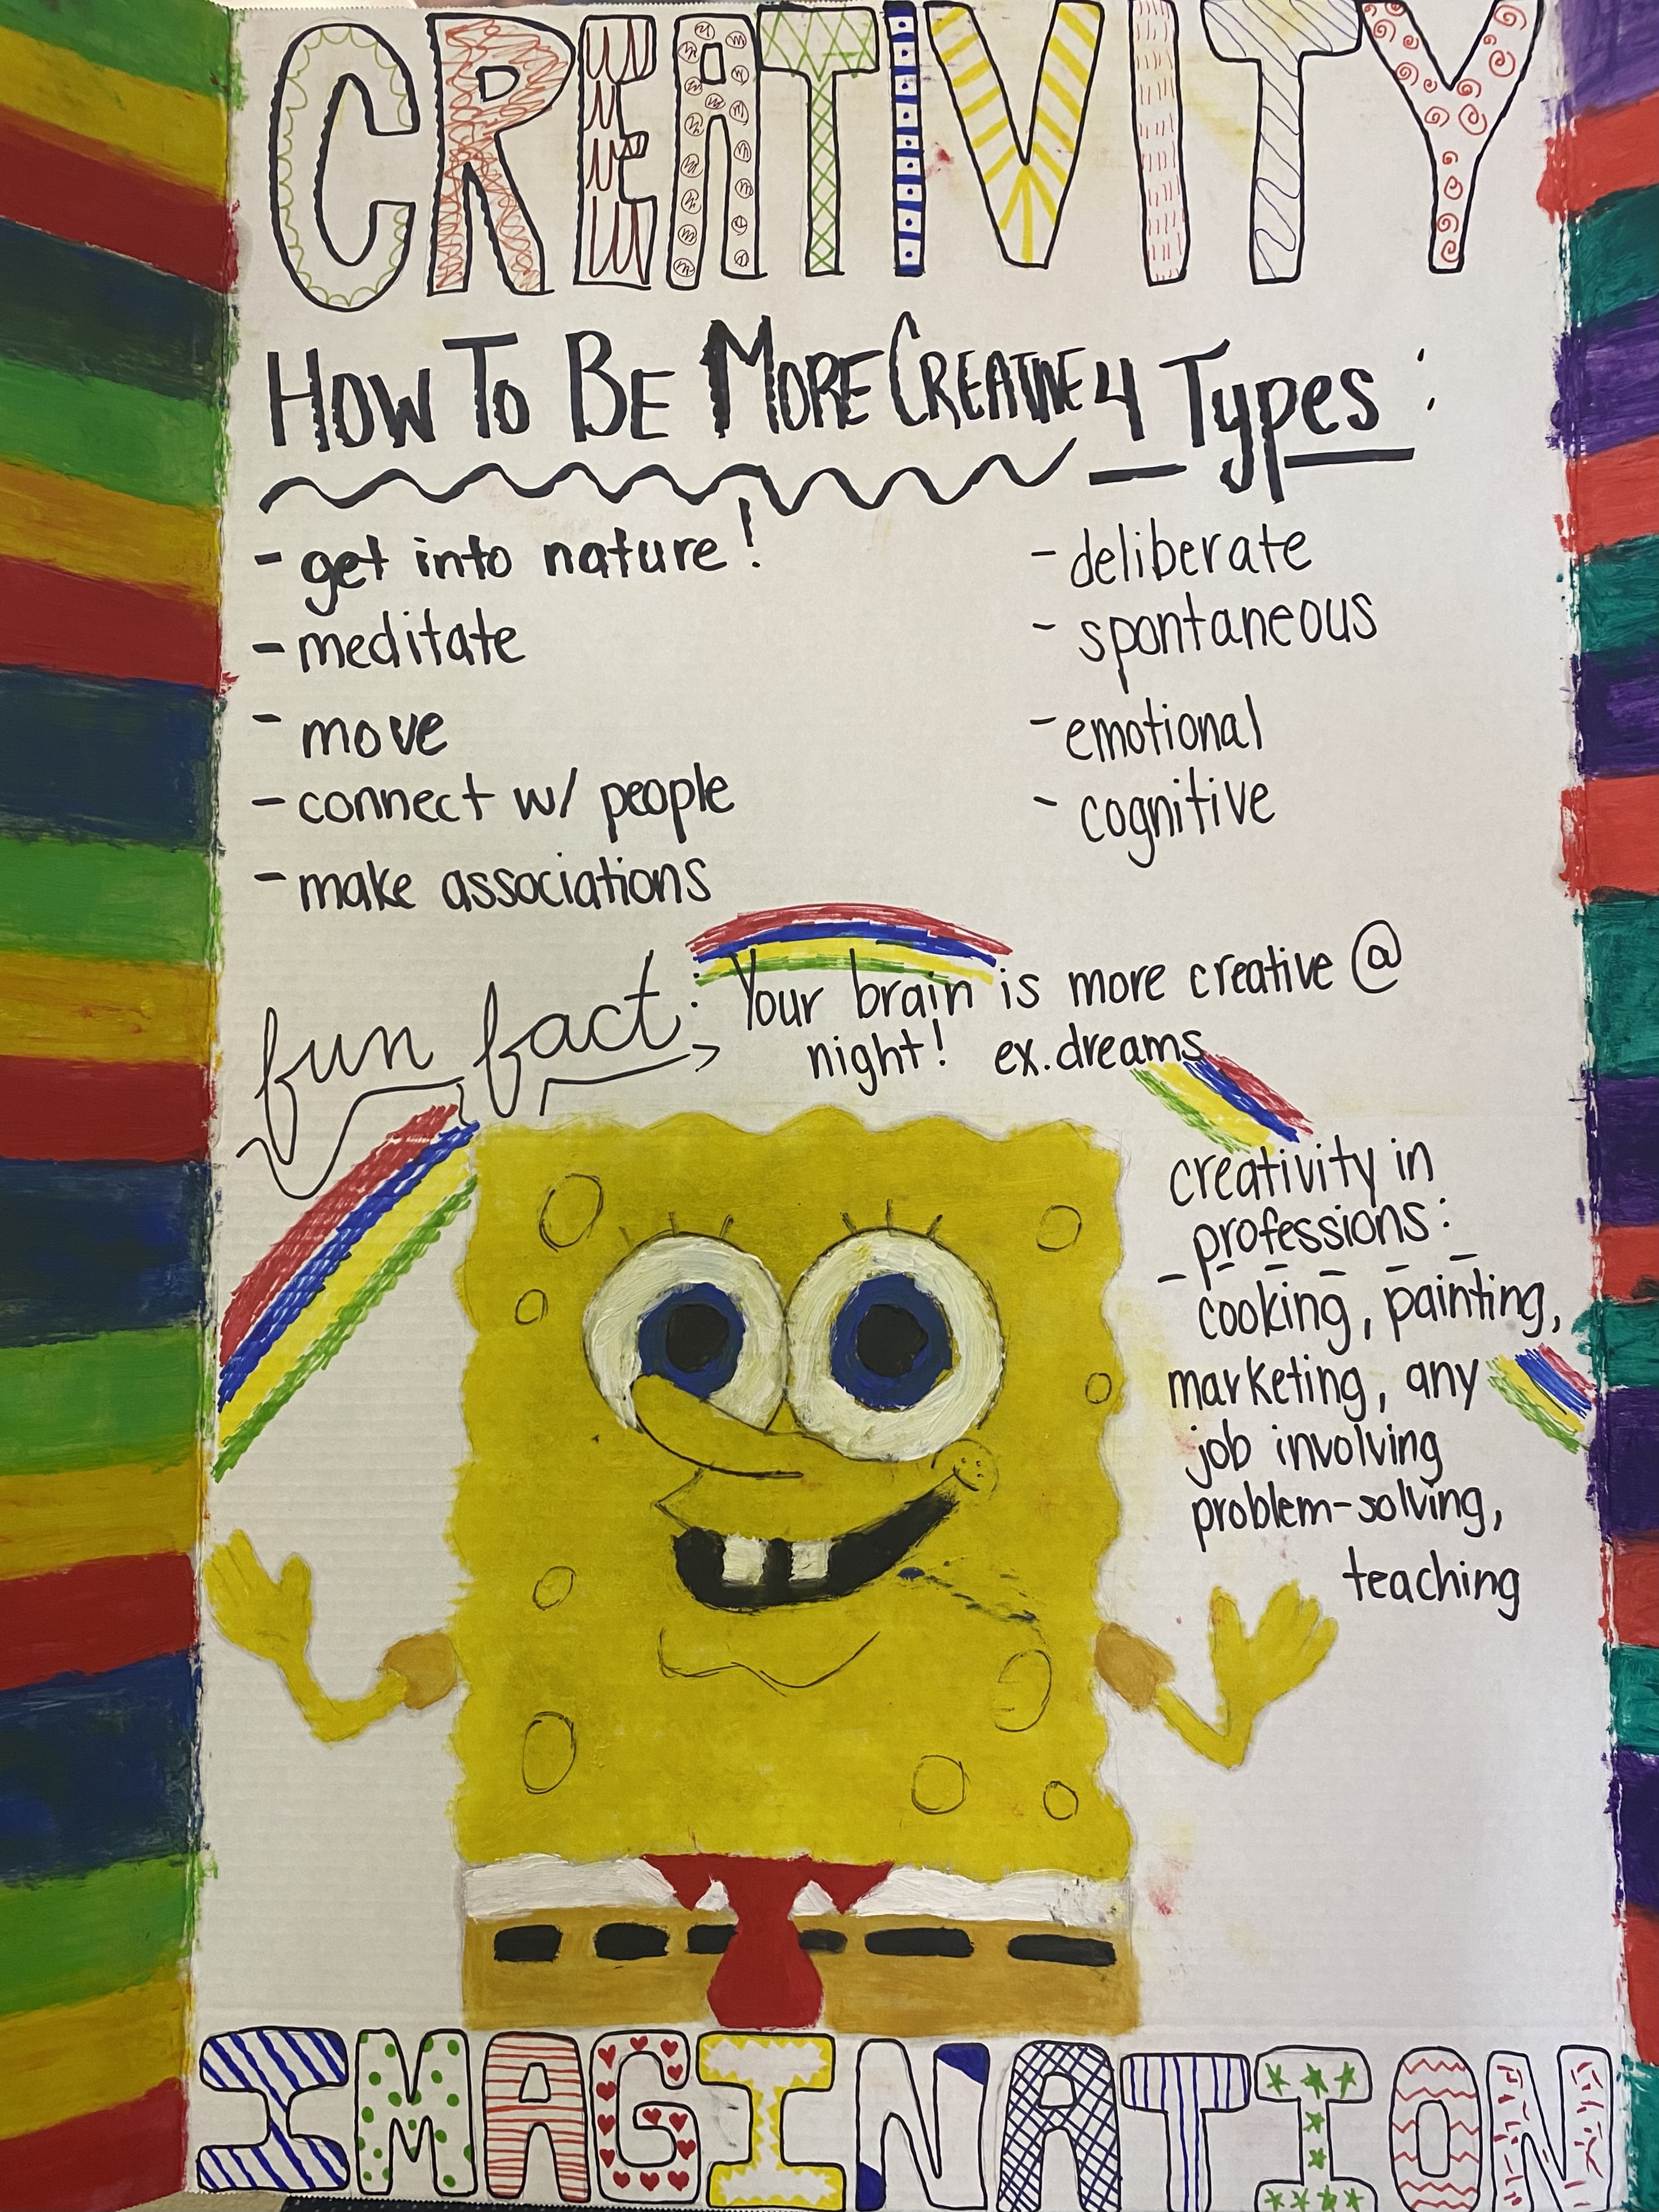 CREATIVITY
HOW TO BE MORE CREATIVE
- get into nature!
- meditate
- move
- connect w/ people
- make associations
4 Types:
- deliberate
- spontaneous
- emotional
- cognitive
fun fact: Your brain is more creative @
night! ex. dreams
creativity in
professions:
cooking, painting,
marketing, any
job involving
problem-solving,
teaching
IMAGINATION